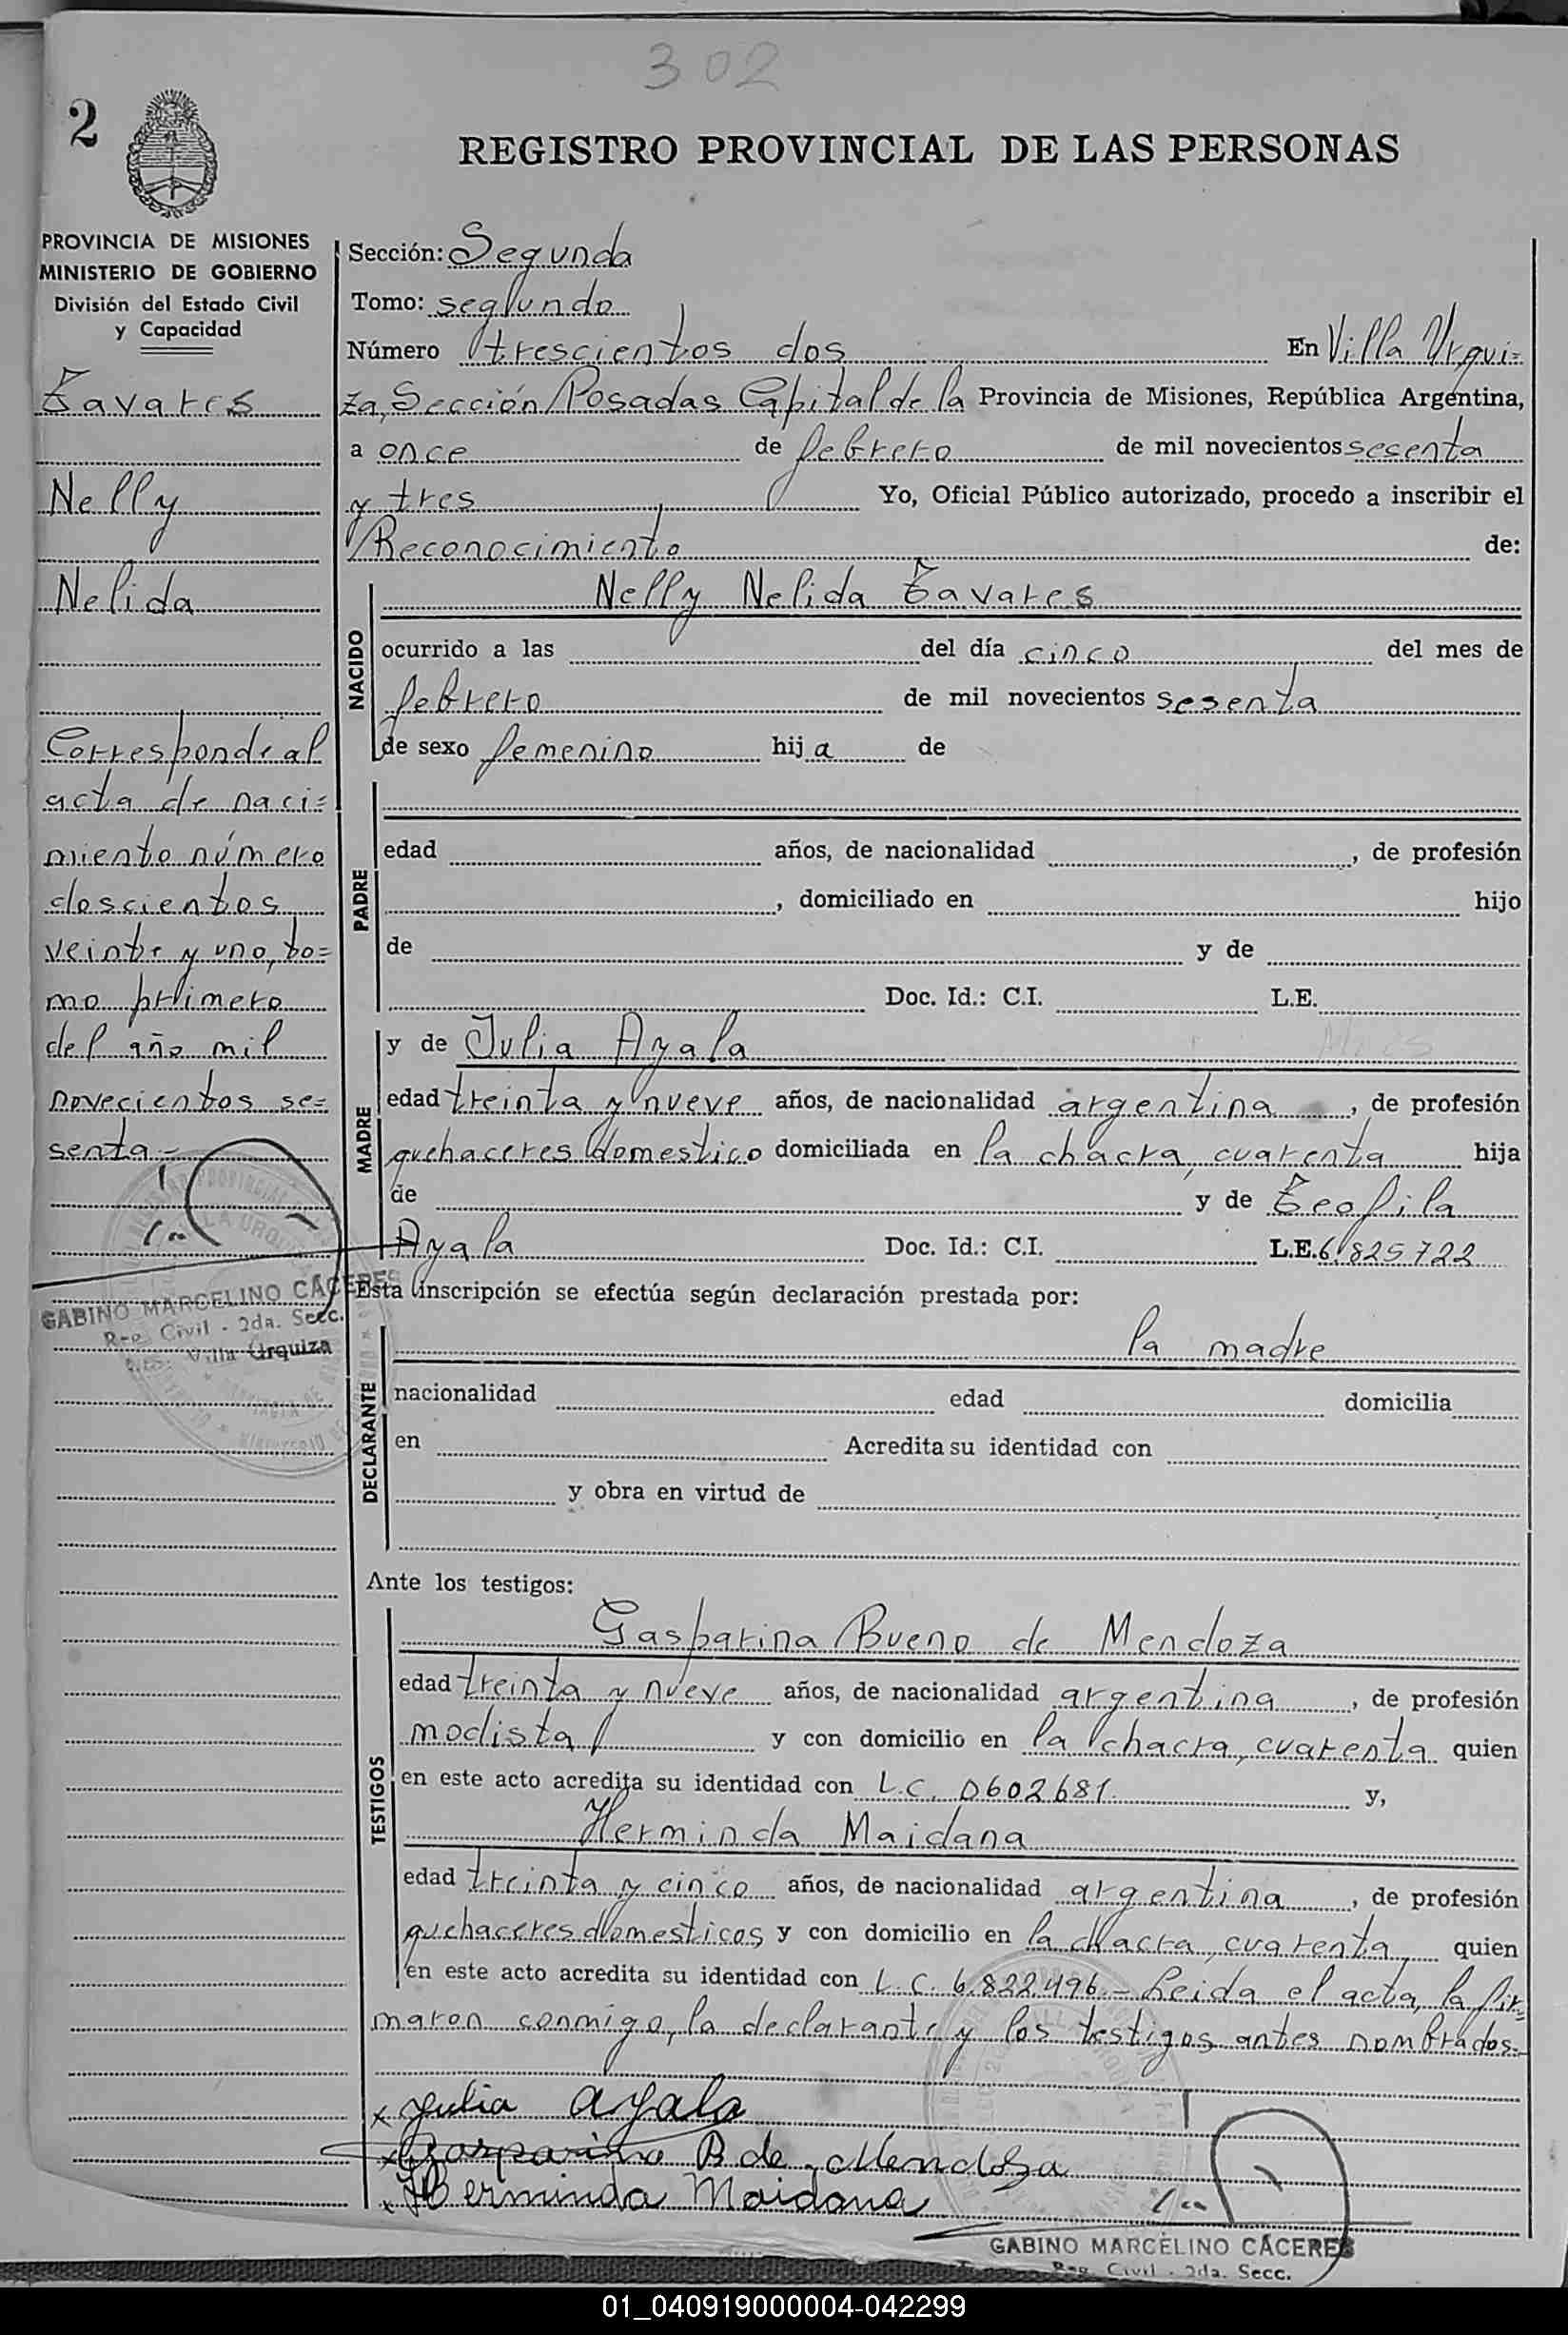 302
2
REGISTRO PROVINCIAL DE LAS PERSONAS
PROVINCIA DE MISIONES
MINISTERIO DE GOBIERNO
División del Estado Civil
y Capacidad
Tavares
Nelly
Nelida
Corresponde al
acta de naci=
miento número
doscientos
veinte y uno, to=
mo primero
del año mil
novecientos se=
senta.-
GABINO MARCELINO CÁCERES
Reg. Civil - 2da. Secc.
Villa Urquiza
Sección: Segunda
Tomo: segundo
Número trescientos dos En Villa Urqui=
za, Sección Posadas Capital de la Provincia de Misiones, República Argentina,
a once de febrero de mil novecientos sesenta
y tres Yo, Oficial Público autorizado, procedo a inscribir el
Reconocimiento de:
NACIDO
Nelly Nelida Tavares
ocurrido a las del día cinco del mes de
febrero de mil novecientos sesenta
de sexo femenino hij a de
PADRE
edad años, de nacionalidad , de profesión
, domiciliado en hijo
de y de
Doc. Id.: C.I. L.E.
MADRE
y de Julia Ayala
edad treinta y nueve años, de nacionalidad argentina , de profesión
quehaceres domestico domiciliada en la chacra, cuarenta hija
de y de Teofila
Ayala Doc. Id.: C.I. L.E. 6.825722
Esta inscripción se efectúa según declaración prestada por:
DECLARANTE
la madre
nacionalidad edad domicilia
en Acredita su identidad con
y obra en virtud de
Ante los testigos:
TESTIGOS
Gasparina Bueno de Mendoza
edad treinta y nueve años, de nacionalidad argentina , de profesión
modista y con domicilio en la chacra, cuarenta quien
en este acto acredita su identidad con L.C. 0602681 y,
Herminda Maidana
edad treinta y cinco años, de nacionalidad argentina , de profesión
quehaceres domesticos y con domicilio en la chacra, cuarenta quien
en este acto acredita su identidad con L.C. 6.822.496.- Leida el acta, la fir=
maron conmigo, la declarante y los testigos antes nombrados.-
x Julia Ayala
x Gasparina B de Mendoza
x Herminda Maidana
GABINO MARCELINO CÁCERES
Reg. Civil - 2da. Secc.
01_040919000004-042299